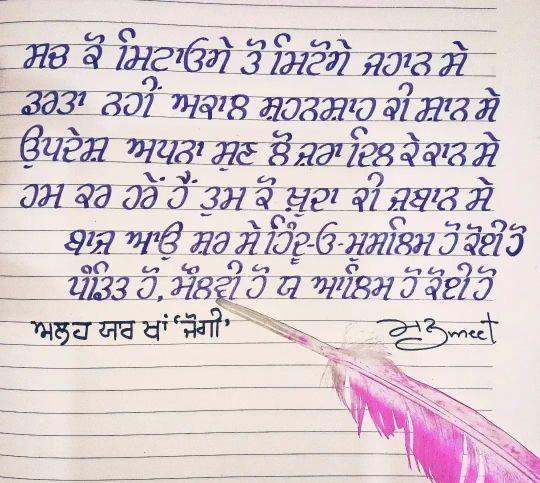 ਸਚ ਕੋ ਮਿਟਾਓਗੇ ਤੋ ਮਿਟੋਗੇ ਜਹਾਨ ਸੇ
ਡਰਤਾ ਨਹੀਂ ਅਕਾਲ ਸ਼ਹਨਸ਼ਾਹ ਕੀ ਸ਼ਾਨ ਸੇ
ਉਪਦੇਸ਼ ਅਪਨਾ ਸੁਣ ਲੋ ਜ਼ਰਾ ਦਿਲ ਕੇ ਕਾਨ ਸੇ
ਹਮ ਕਰ ਰਹੇਂ ਹੈਂ ਤੁਮ ਕੋ ਖ਼ੁਦਾ ਕੀ ਜ਼ਬਾਨ ਸੇ
ਬਾਜ਼ ਆਓ ਸ਼ਰ ਸੇ ਹਿੰਦੂ-ਓ-ਮੁਸਲਿਮ ਹੋ ਕੋਈ ਹੋ
ਪੰਡਿਤ ਹੋ, ਮੌਲਵੀ ਹੋ ਯ ਆਲਿਮ ਹੋ ਕੋਈ ਹੋ
ਅਲ੍ਹਹ ਯਾਰ ਖਾਂ 'ਜੋਗੀ'
meet